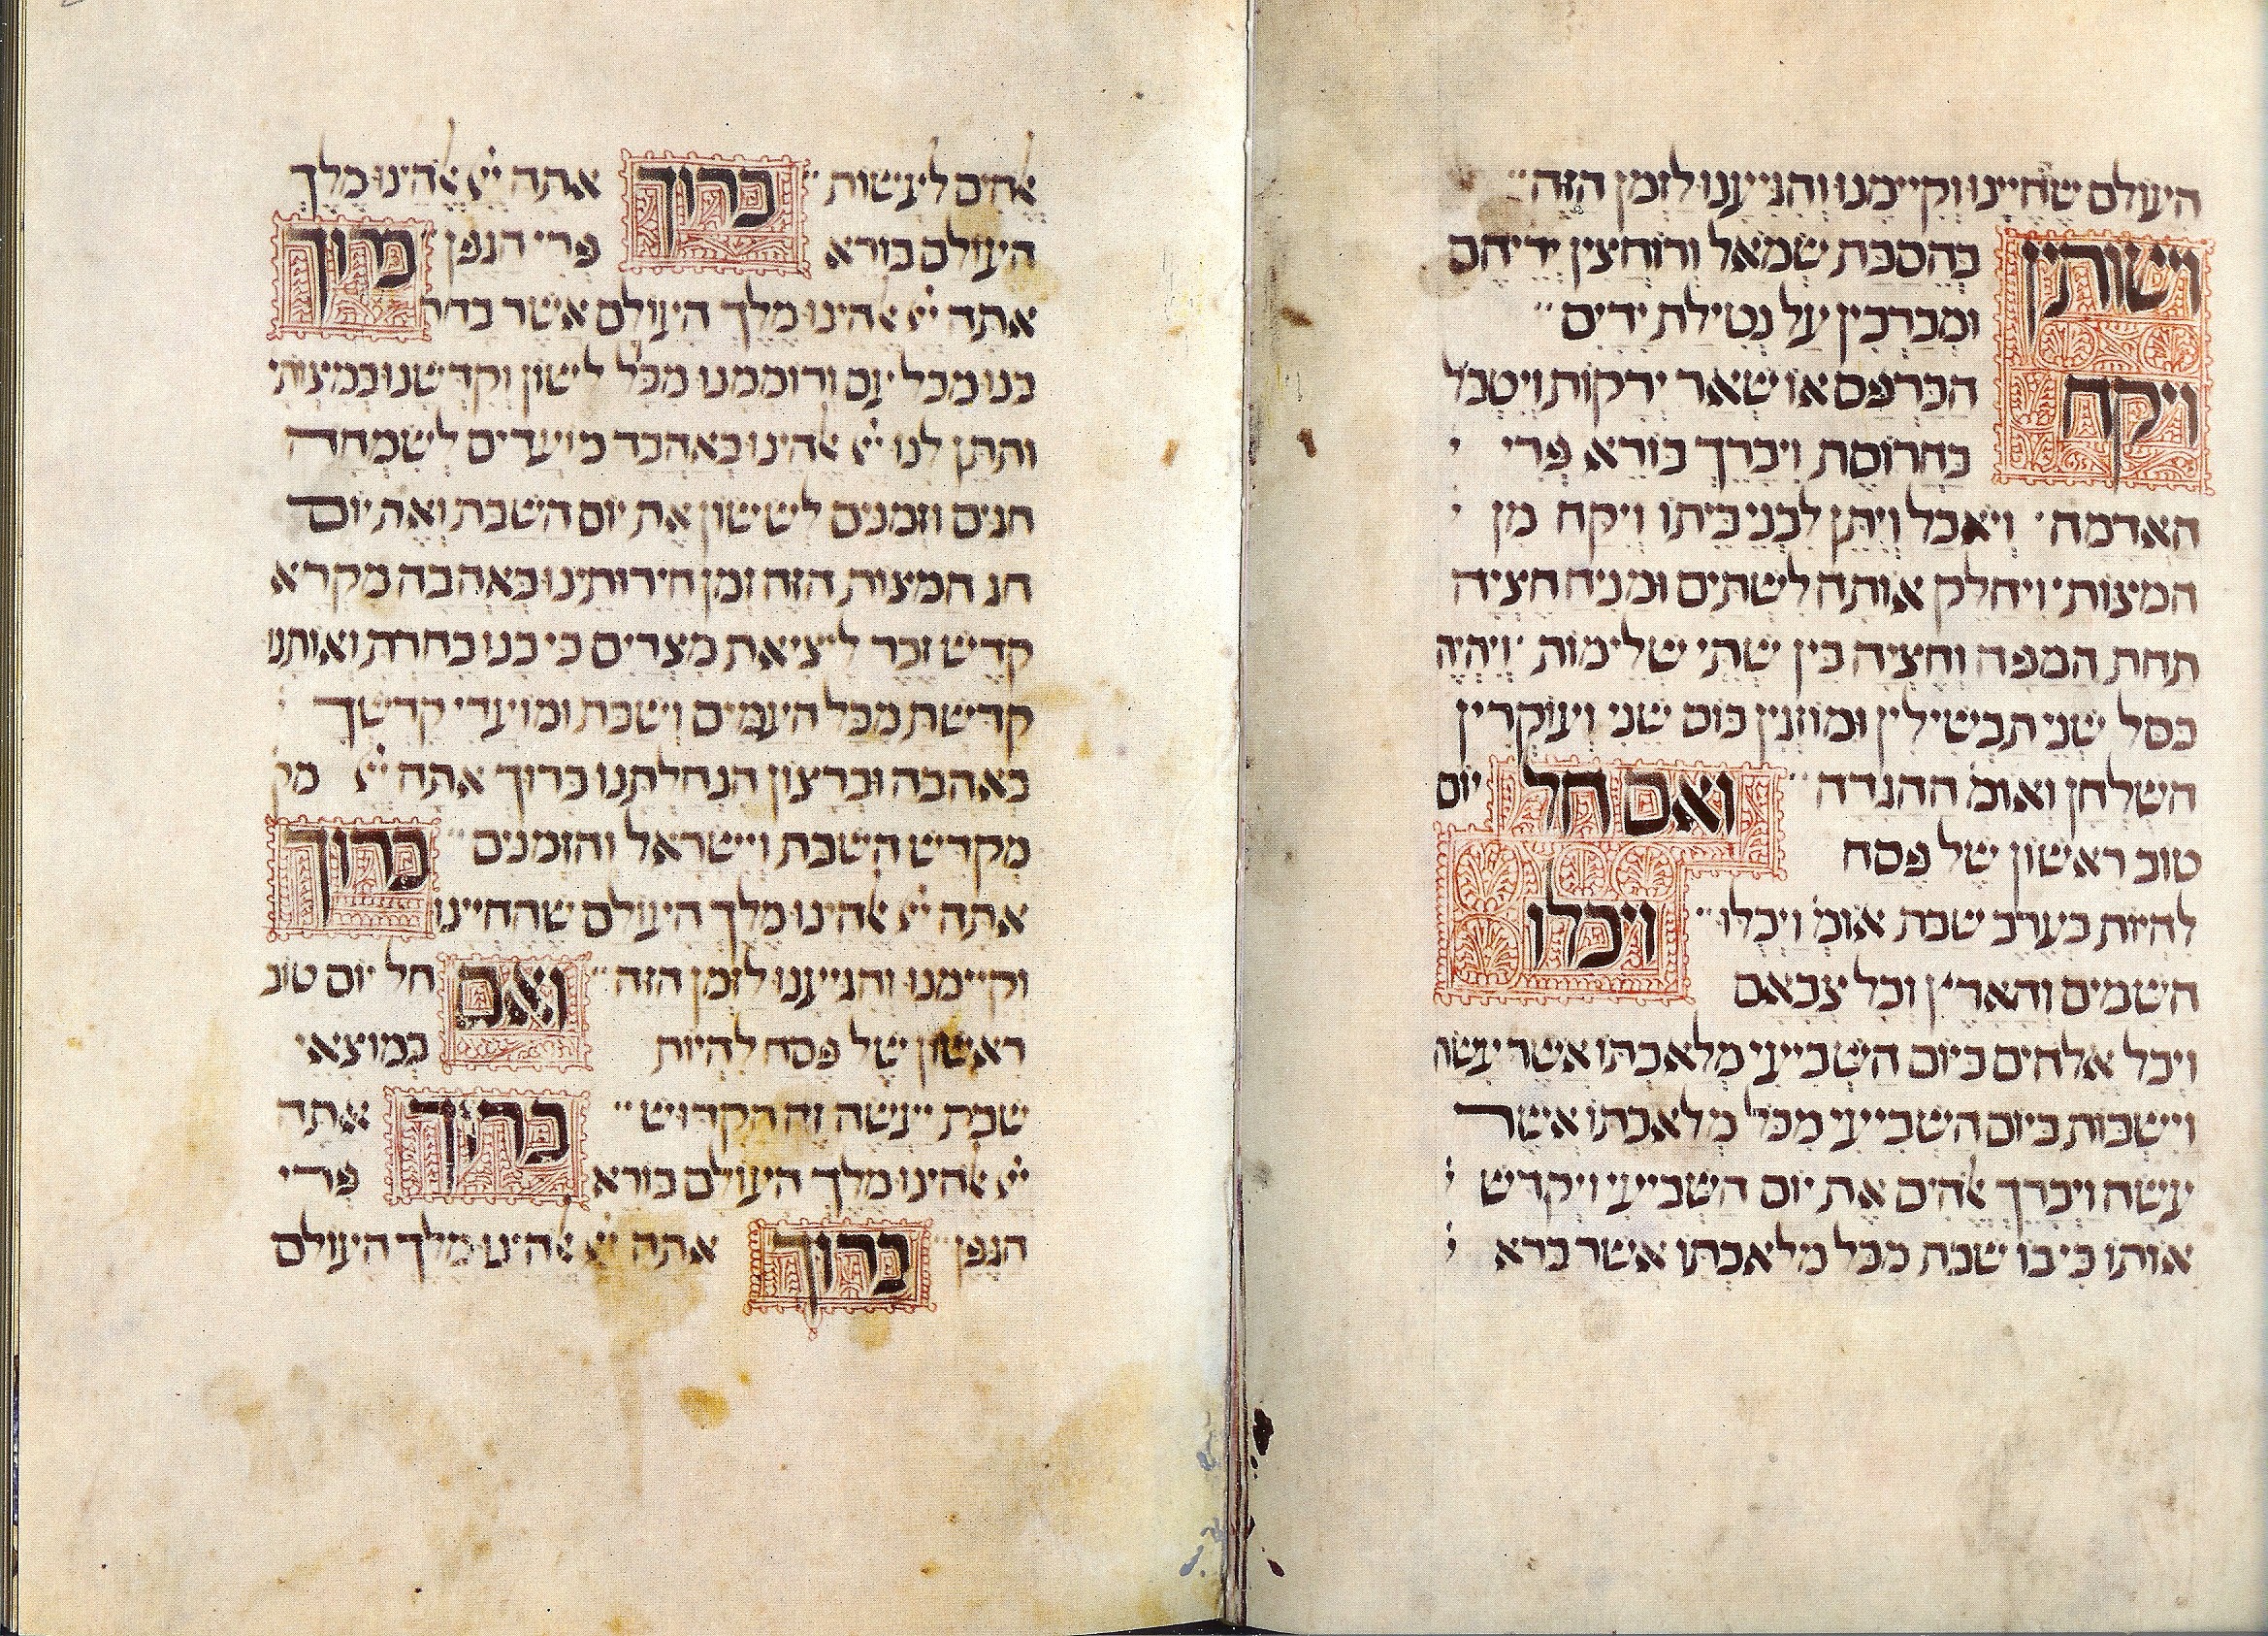 העולם שהחיינו וקיימנו והגיענו לזמן הזה
וישותין בהסבת שמאל ורוחצין ידיהם
ומברכין על נטילת ידים
ויקח הכרפס או שאר ירקות ויטבל
בחרוסת ויברך בורא פרי
האדמה ויאכל ויתן לבני ביתו ויקח מן
המצות ויחלק אותה לשתים ומניח חציה
תחת המפה וחציה בין שתי שלימות ויהיה
בסל שני תבשילין ומוזגין כוס שני ועוקרין
השלחן ואומ ההגדה ואם חל יום
טוב ראשון של פסח
להיות בערב שבת אומ ויכלו ויכלו
השמים והארץ וכל צבאם
ויכל אלהים ביום השביעי מלאכתו אשר עשה
וישבות ביום השביעי מכל מלאכתו אשר
עשה ויברך אלהים את יום השביעי ויקדש
אותו כי בו שבת מכל מלאכתו אשר ברא
אלהים לעשות ברוך אתה ײ אלהינו מלך
העולם בורא פרי הגפן ברוך
אתה ײ אלהינו מלך העולם אשר בחר
בנו מכל עם ורוממנו מכל לשון וקדשנו במצותי
ותתן לנו ײ אלהינו באהבה מועדים לשמחה
חגים וזמנים לששון את יום השבת ואת יום
חג המצות הזה זמן חירותינו באהבה מקרא
קדש זכר ליציאת מצרים כי בנו בחרת ואותנו
קדשת מכל העמים ושבת ומועדי קדשך
באהבה וברצון הנחלתנו ברוך אתה ײ מק
מקדש השבת וישראל והזמנים ברוך
אתה ײ אלהינו מלך העולם שהחיינו
וקיימנו והגיענו לזמן הזה ואם חל יום טוב
ראשון של פסח להיות במוצאי
שבת יעשה זה הקדוש ברוך אתה
ײ אלהינו מלך העולם בורא פרי
הגפן ברוך אתה ײ אלהינו מלך העולם